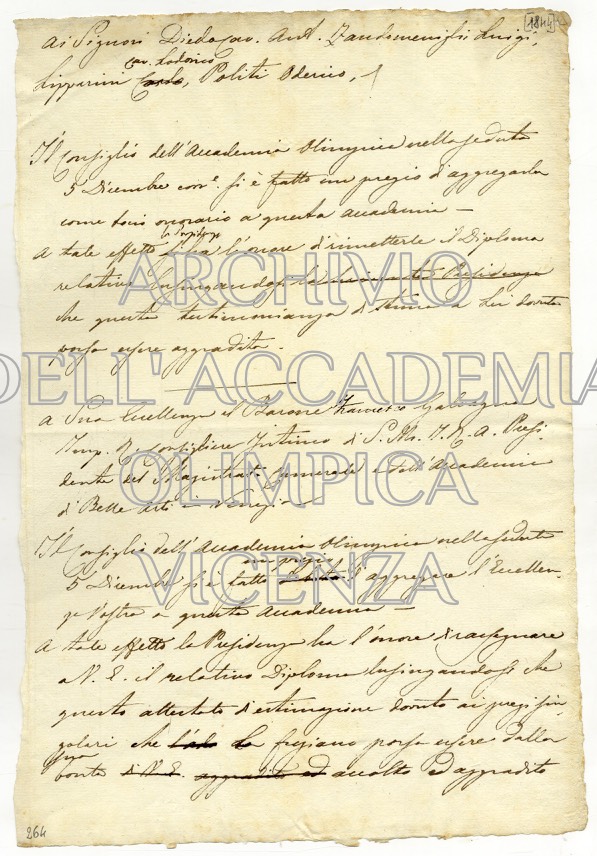 [1844]
Ai Signori Diedo Cav. Ant. Zandomenighi Luigi,
cav. Lodovico
Lipparini Carlo, Politi Oderico,
Il Consiglio dell'Accademia Olimpica nella seduta
5 Dicembre corr.e si è fatto un pregio d'aggregarla
come socio onorario a questa accademia —
la Presidenza
A tale effetto si ha l'onore di rimetterle il Diploma
relativo lusingandosi la Presidenza
che questa testimonianza di stima a Lei dovuta
possa essere aggradita.
A Sua Eccellenza il Barone Galvagna
Imp. R. Consigliere Intimo di S. M. I. R. A. Presi-
dente del Magistrato Camerale e dell'Accademia
di Belle Arti in Venezia
Il Consiglio dell'Accademia Olimpica nella seduta
un pregio
5 Dicembre si è fatto d'aggregare l'Eccellen-
za Vostra a questa Accademia —
A tale effetto la Presidenza ha l'onore di rassegnare
a V. E. il relativo Diploma lusingandosi che
questo attestato di estimazione dovuto ai pregi sin-
golari che la fregiano possa essere dalla
sua
bontà di V. E. aggradito ed accolto ed aggradito
264
ARCHIVIO
DELL'ACCADEMIA
OLIMPICA
VICENZA